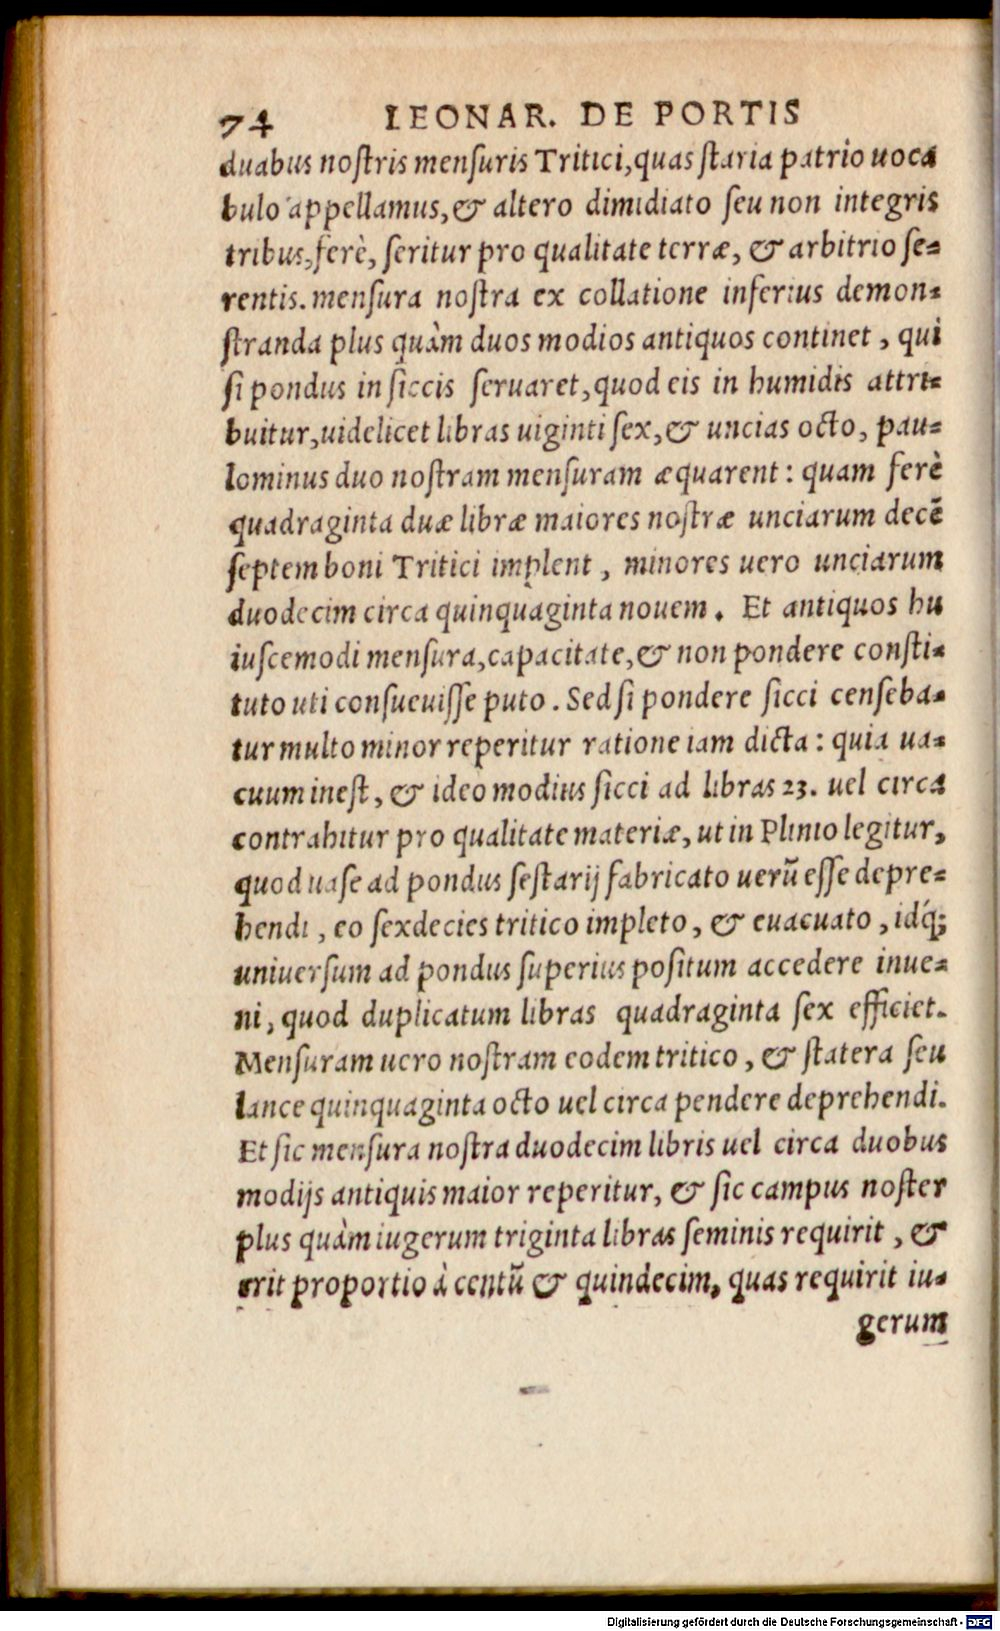 74 LEONAR. DE PORTIS
duabus noſtris menſuris Tritici, quas ſtaria patrio uoca
bulo appellamus, & altero dimidiato ſeu non integris
tribus, ferè, ſeritur pro qualitate terræ, & arbitrio ſe=
rentis. menſura noſtra ex collatione inferius demon=
ſtranda plus quàm duos modios antiquos continet, qui
ſi pondus in ſiccis ſeruaret, quod eis in humidis attri=
buitur, uidelicet libras uiginti ſex, & uncias octo, pau=
lominus duo noſtram menſuram æquarent: quam ferè
quadraginta duæ libræ maiores noſtræ unciarum decē
ſeptem boni Tritici implent, minores uero unciarum
duodecim circa quinquaginta nouem. Et antiquos hu
iuſcemodi menſura, capacitate, & non pondere conſti=
tuto uti conſueuiſſe puto. Sed ſi pondere ſicci cenſeba=
tur multo minor reperitur ratione iam dicta: quia ua=
cuum ineſt, & ideo modius ſicci ad libras 23. uel circa
contrahitur pro qualitate materiæ, ut in Plinio legitur,
quod uaſe ad pondus ſeſtarij fabricato uerū eſſe depre=
hendi, eo ſexdecies tritico impleto, & euacuato, idq́;
uniuerſum ad pondus ſuperius poſitum accedere inue=
ni, quod duplicatum libras quadraginta ſex efficiet.
Menſuram uero noſtram eodem tritico, & ſtatera ſeu
lance quinquaginta octo uel circa pendere deprehendi.
Et ſic menſura noſtra duodecim libris uel circa duobus
modijs antiquis maior reperitur, & ſic campus noſter
plus quàm iugerum triginta libras ſeminis requirit, &
erit proportio à centū & quindecim, quas requirit iu=
gerum
Digitalisierung gefördert durch die Deutsche Forschungsgemeinschaft - DFG